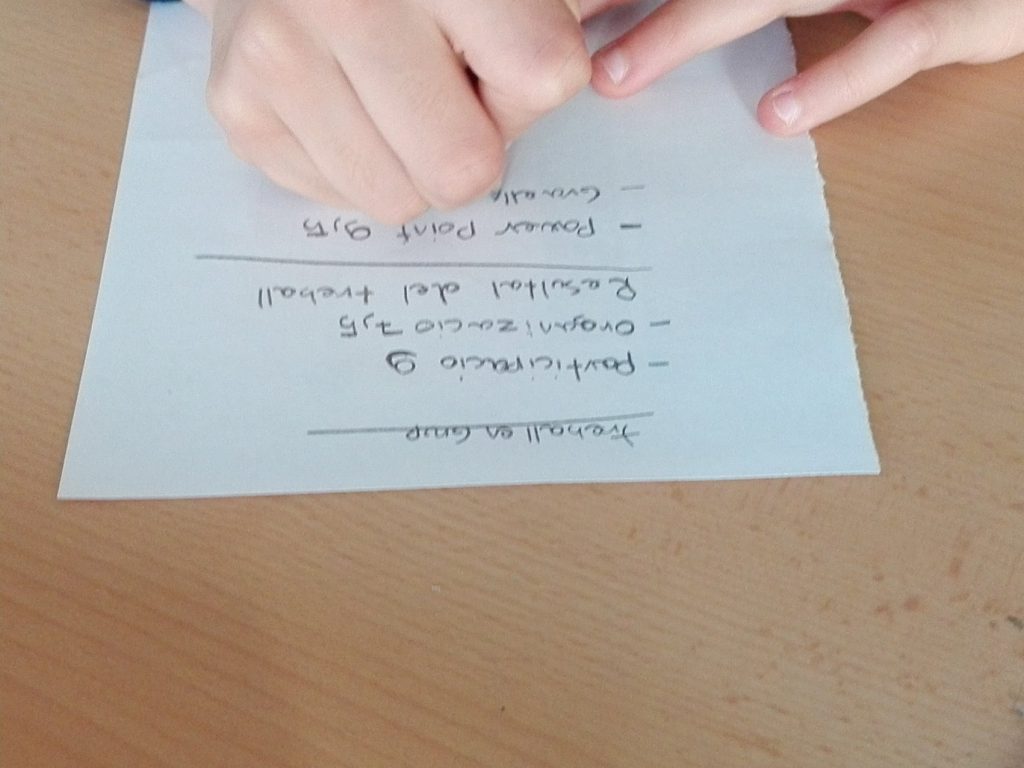 treball en Grup
- participacio 9
- Organizacio 7,5
Resultat del treball
- Power Point 9,5
-